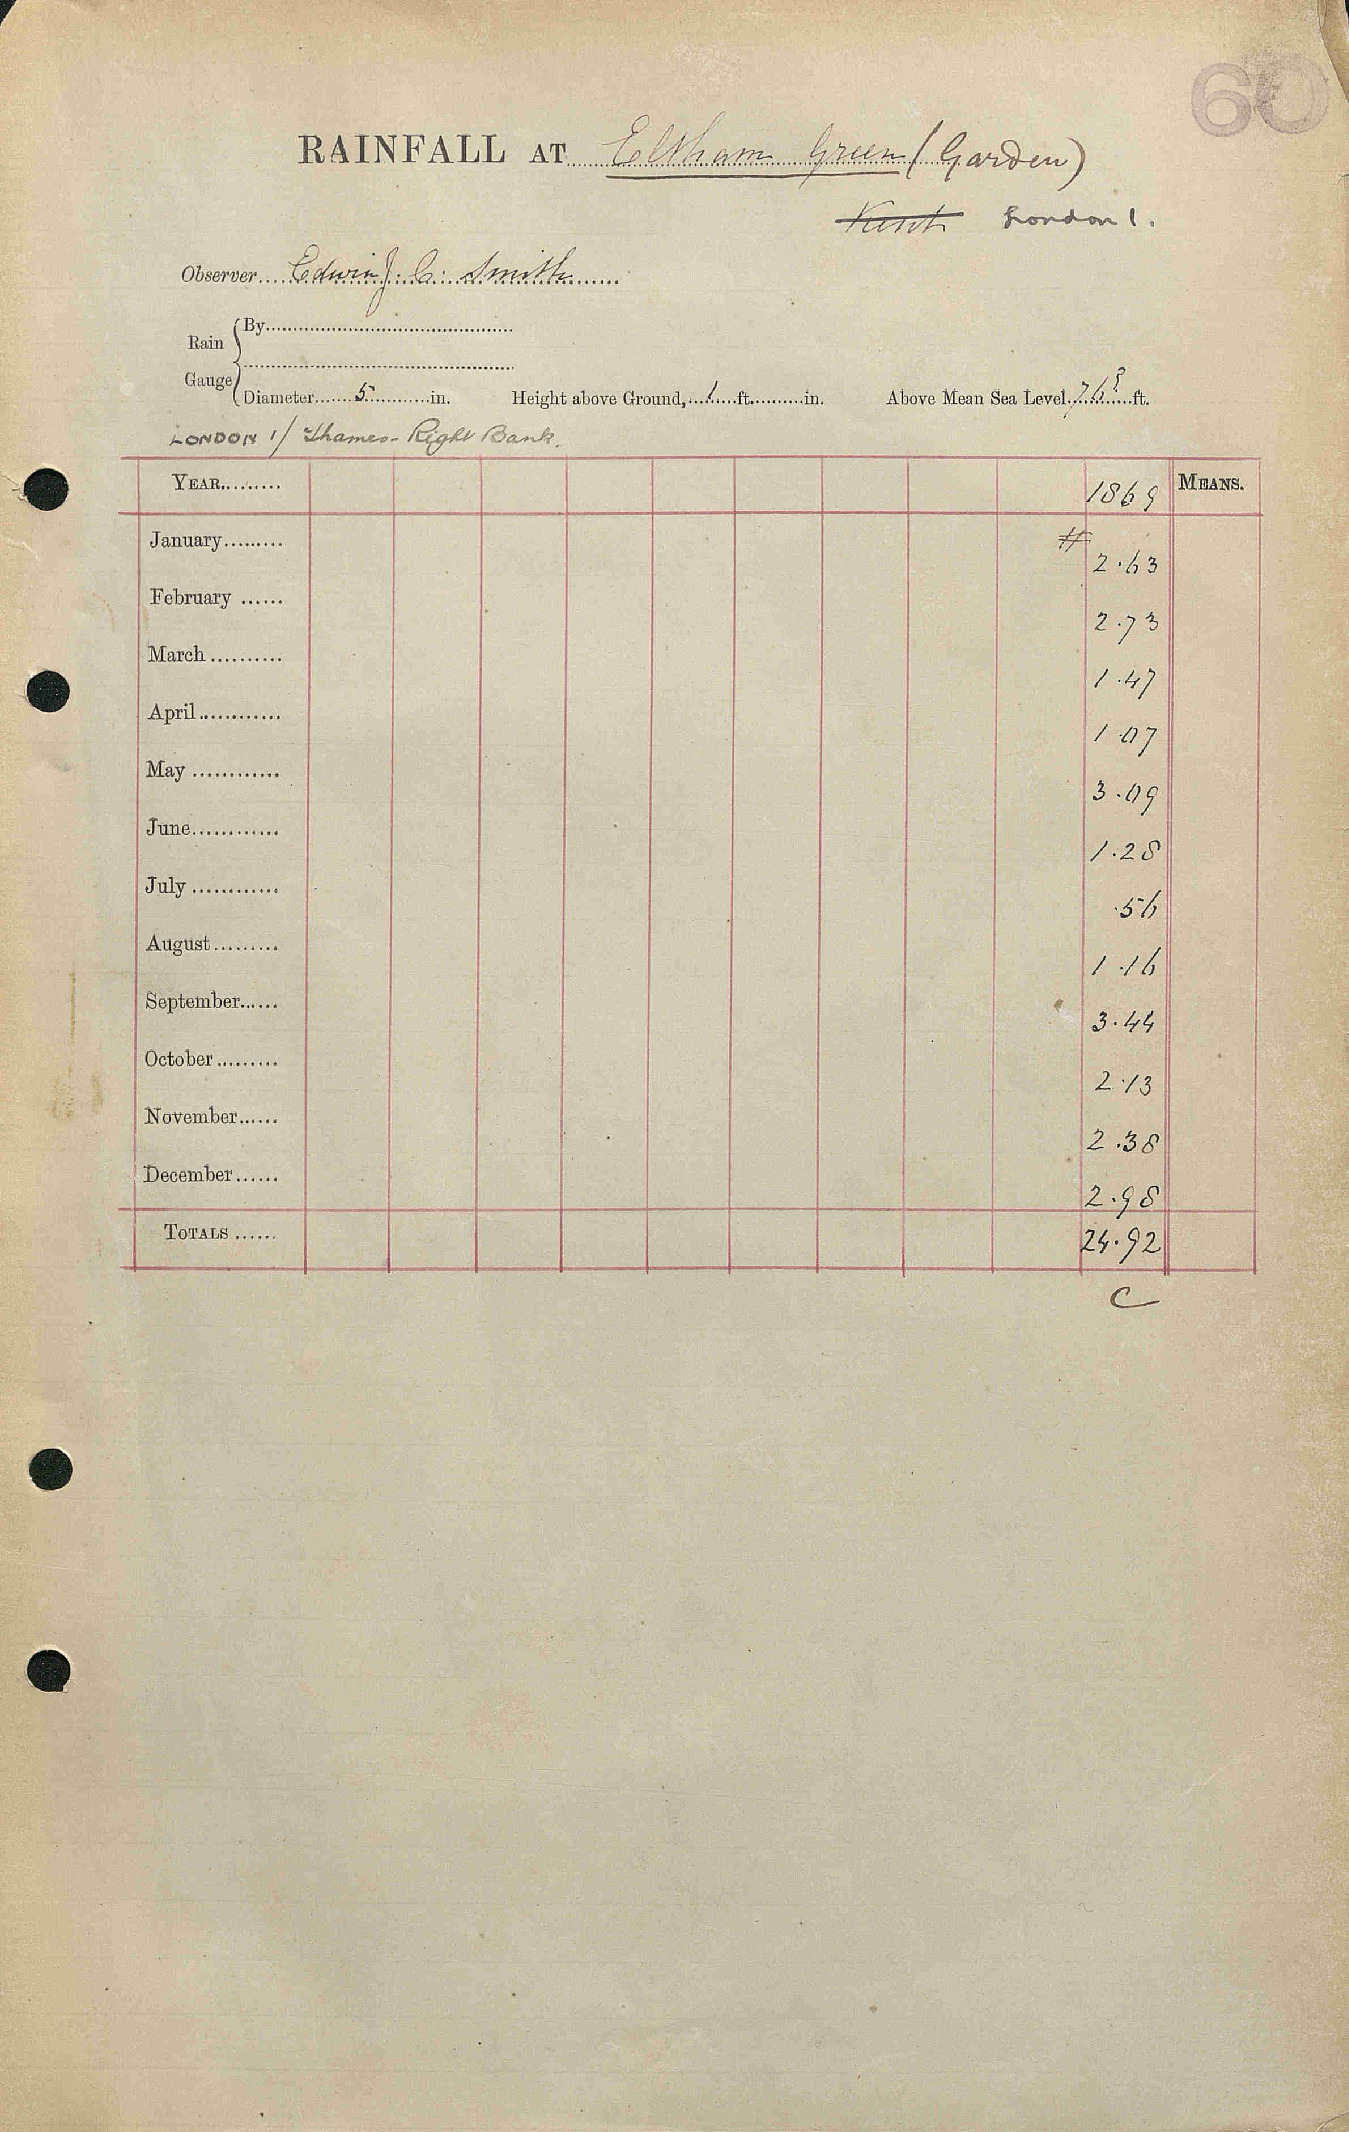 60
RAINFALL AT Eltham Green (Garden)
Kent London 1.
Observer.... Edwin J. C. Smith
Rain Gauge { By
Diameter 5 in. Height above Ground, 1 ft. in. Above Mean Sea Level 76? ft.
LONDON 1/ Thames - Right Bank.
YEAR......... 1869 MEANS.
January......... # 2.63
February ...... 2.73
March.......... 1.47
April............ 1.07
May ............ 3.09
June............ 1.28
July ............ .56
August......... 1.16
September...... 3.44
October......... 2.13
November...... 2.38
December...... 2.98
TOTALS ...... 24.92
C